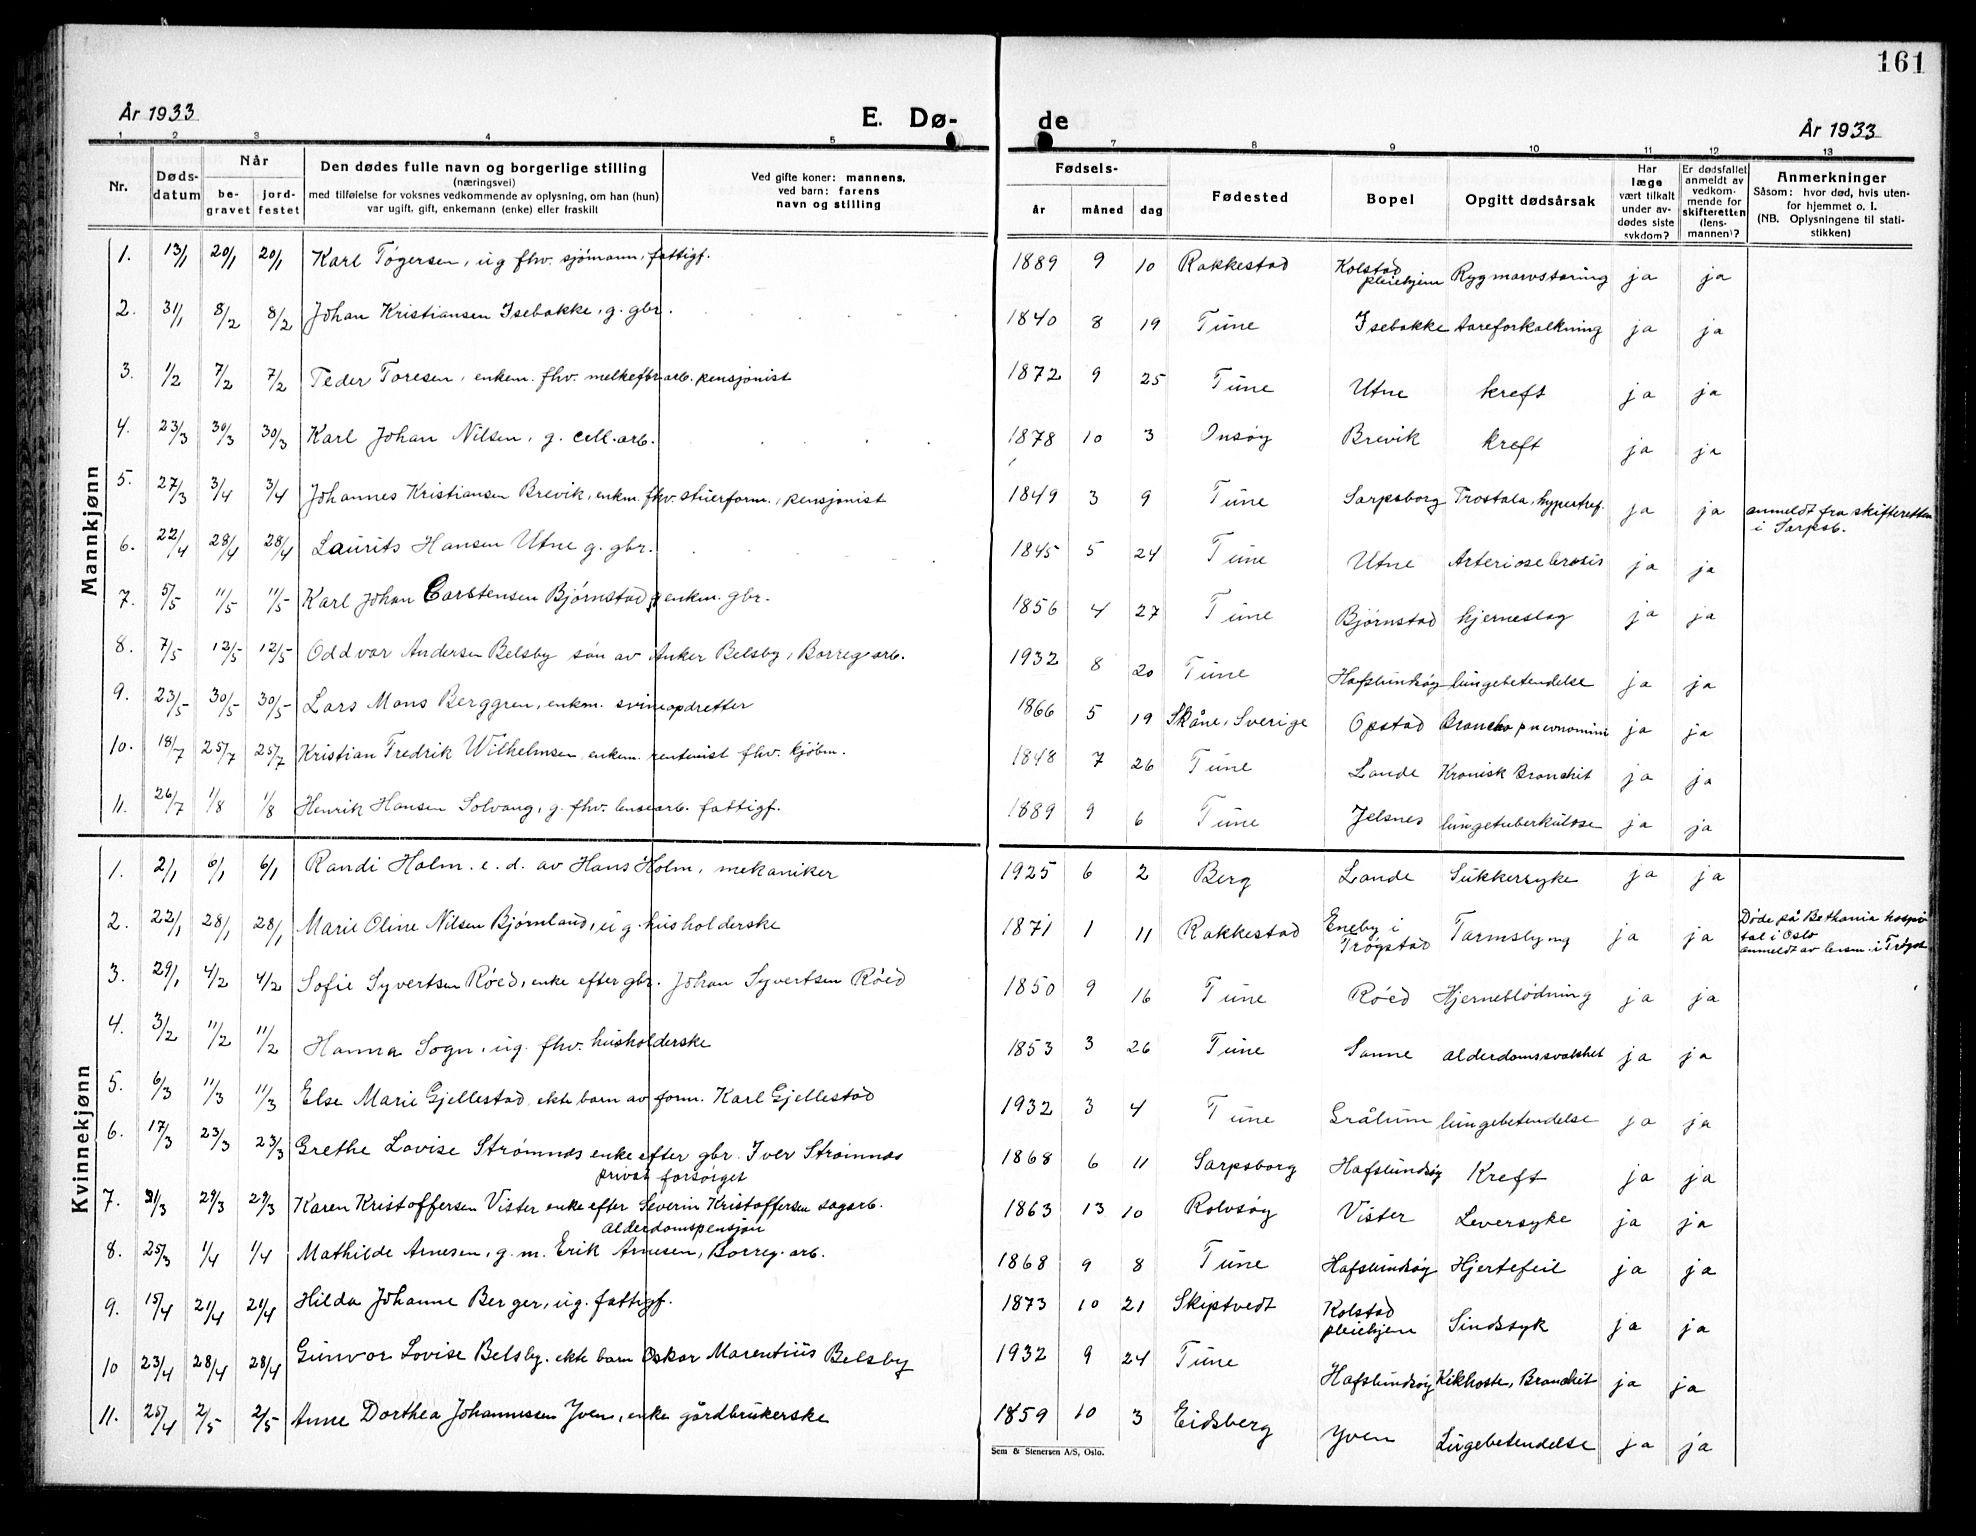 161
År 1933 E. Dø- de År 1933
1 2 3 4 5 7 8 9 10 11 12 13
Nr. Døds-datum Når be-gravet jord-festet Den dødes fulle navn og borgerlige stilling (næringsvei) med tilføielse for voksnes vedkommende av oplysning, om han (hun) var ugift, gift, enkemann (enke) eller fraskilt Ved gifte koner: mannens, ved barn: farens navn og stilling Fødsels- år måned dag Fødested Bopel Opgitt dødsårsak Har læge vært tilkalt under av-dødes siste sykdom? Er dødsfallet anmeldt av vedkom-mende for skifteretten (lens-mannen)? Anmerkninger Såsom: hvor død, hvis uten-for hjemmet o. l. (NB. Oplysningene til stati-stikken)
Mannkjønn
1. 13/1 20/1 20/1 Karl Togersen, ug fhv. sjømann, fattigf. 1889 9 10 Rakkestad Kolstad pleiehjem Rygmarvstæring ja ja
2. 31/1 8/2 8/2 Johan Kristiansen Isebakke, g. gbr. 1840 8 19 Tune Isebakke Aareforkalkning ja ja
3. 1/2 7/2 7/2 Peder Toresen, enkem. fhv. melkefbr.arb. pensjonist 1872 9 25 Tune Utne kreft ja ja
4. 23/3 30/3 30/3 Karl Johan Nilsen, g. cell.arb. 1878 10 3 Onsøy Brevik kreft ja ja
5. 27/3 3/4 3/4 Johannes Kristiansen Brevik, enkm. fhv. stuerform., pensjonist 1849 3 9 Tune Sarpsborg Prostata, hypertrof. ja ja anmeldt fra skifteretten i Sarpsb.
6. 22/4 28/4 28/4 Laurits Hansen Utne g. gbr. 1845 5 24 Tune Utne ja ja
7. 5/5 11/5 11/5 Karl Johan Carstensen Bjørnstad, enkm. gbr. 1856 4 27 Tune Bjørnstad hjerneslag ja ja
8. 7/5 12/5 12/5 Oddvar Andersen Belsby søn av Anker Belsby, Borreg.arb. 1932 8 20 Tune Hafslundsøy lungebetendelse ja ja
9. 23/5 30/5 30/5 Lars Mons Berggren, enkm. svineopdretter 1866 5 19 Skåne, Sverige Opstad ja ja
10. 18/7 25/7 25/7 Kristian Fredrik Wilhelmsen enkem. rentenist fhv. kjøbm. 1848 7 26 Tune Lande Kronisk Bronchit ja ja
11. 26/7 1/8 1/8 Henrik Hansen Solvang, g. fhv. lensearb. fattigf. 1889 9 6 Tune Jelsnes lungetuberkulose ja ja
Kvinnekjønn
1. 2/1 6/1 6/1 Randi Holm. e. d. av Hans Holm, mekaniker 1925 6 2 Berg Lande Sukkersyke ja ja
2. 22/1 28/1 28/1 Marie Oline Nilsen Bjørnland, ug. husholderske 1871 1 11 Rakkestad Eneby i Trøgstad Tarmslyng ja ja Døde på Bethania hospital i Oslo anmeldt av lensm. i Trøgst
3. 29/1 4/2 4/2 Sofie Syvertsen Røed, enke efter gbr. Johan Syvertsen Røed 1850 9 16 Tune Røed Hjerneblødning ja ja
4. 3/2 11/2 11/2 Hanna Sogn, ug. fhv. husholderske 1853 3 26 Tune Sanne alderdomssvakhet ja ja
5. 6/3 11/3 11/3 Else Marie Gjellestad ekte barn av form. Karl Gjellestad 1932 3 4 Tune Grålum lungebetendelse ja ja
6. 17/3 23/3 23/3 Grethe Lovise Strømnæs enke efter gbr. Iver Strømnæs privat forsørget 1868 6 11 Sarpsborg Hafslundsøy Kreft ja ja
7. 21/3 29/3 29/3 Karen Kristoffersen Vister enke efter Severin Kristoffersen sagarb. alderdomspensjon 1863 13 10 Rolvsøy Vister Leversyke ja ja
8. 25/3 1/4 1/4 Mathilde Arnesen, g. m. Erik Arnesen, Borreg. arb. 1868 9 8 Tune Hafslundsøy Hjertefeil ja ja
9. 15/4 21/4 21/4 Hilda Johanne Berger, ug. fattigf. 1873 10 21 Skiptvedt Kolstad pleiehjem Sindssyk ja ja
10 23/4 28/4 28/4 Gunvor Lovise Belsby. ekte barn Oskar Marentius Belsby 1932 9 24 Tune Hafslundsøy Kikhoste, Bronchit ja ja
11. 25/4 2/5 2/5 Anne Dorthea Johannessen Yven, enke gårdbrukerske 1859 10 3 Eidsberg Yven Lungebetendelse ja ja
Sem & Stenersen A/S, Oslo.